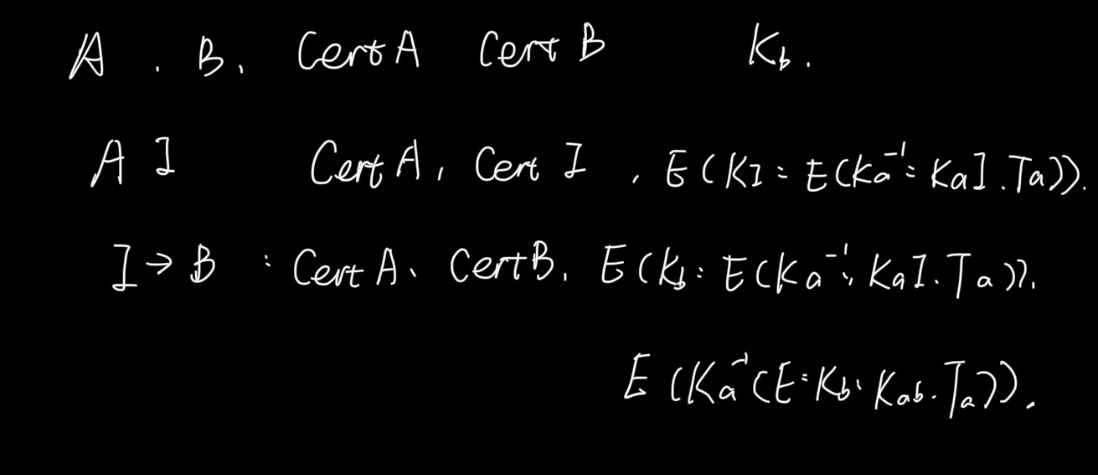 A . B, Cert A Cert B Kb.
A I Cert A, Cert I , E(KI: E(Ka⁻¹: KaI.Ta)).
I → B : Cert A、Cert B, E(Kb: E(Ka⁻¹: KaI.Ta)).
E(Ka⁻¹(E:Kb: Kab.Ta)).